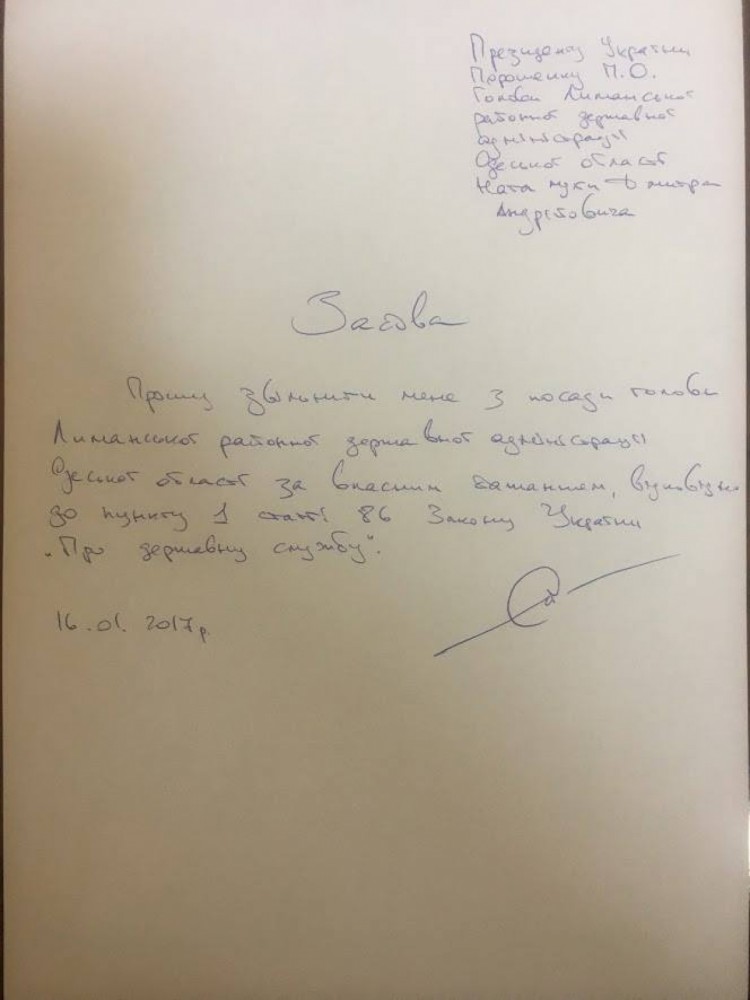 Президенту України
Порошенку П.О.
Голови Лиманської
районної державної
адміністрації
Одеської області
Наталухи Дмитра
Андрійовича
Заява
Прошу звільнити мене з посади голови
Лиманської районної державної адміністрації
Одеської області за власним бажанням, відповідно
до пункту 1 статті 86 Закону України
„Про державну службу".
16.01.2017р.